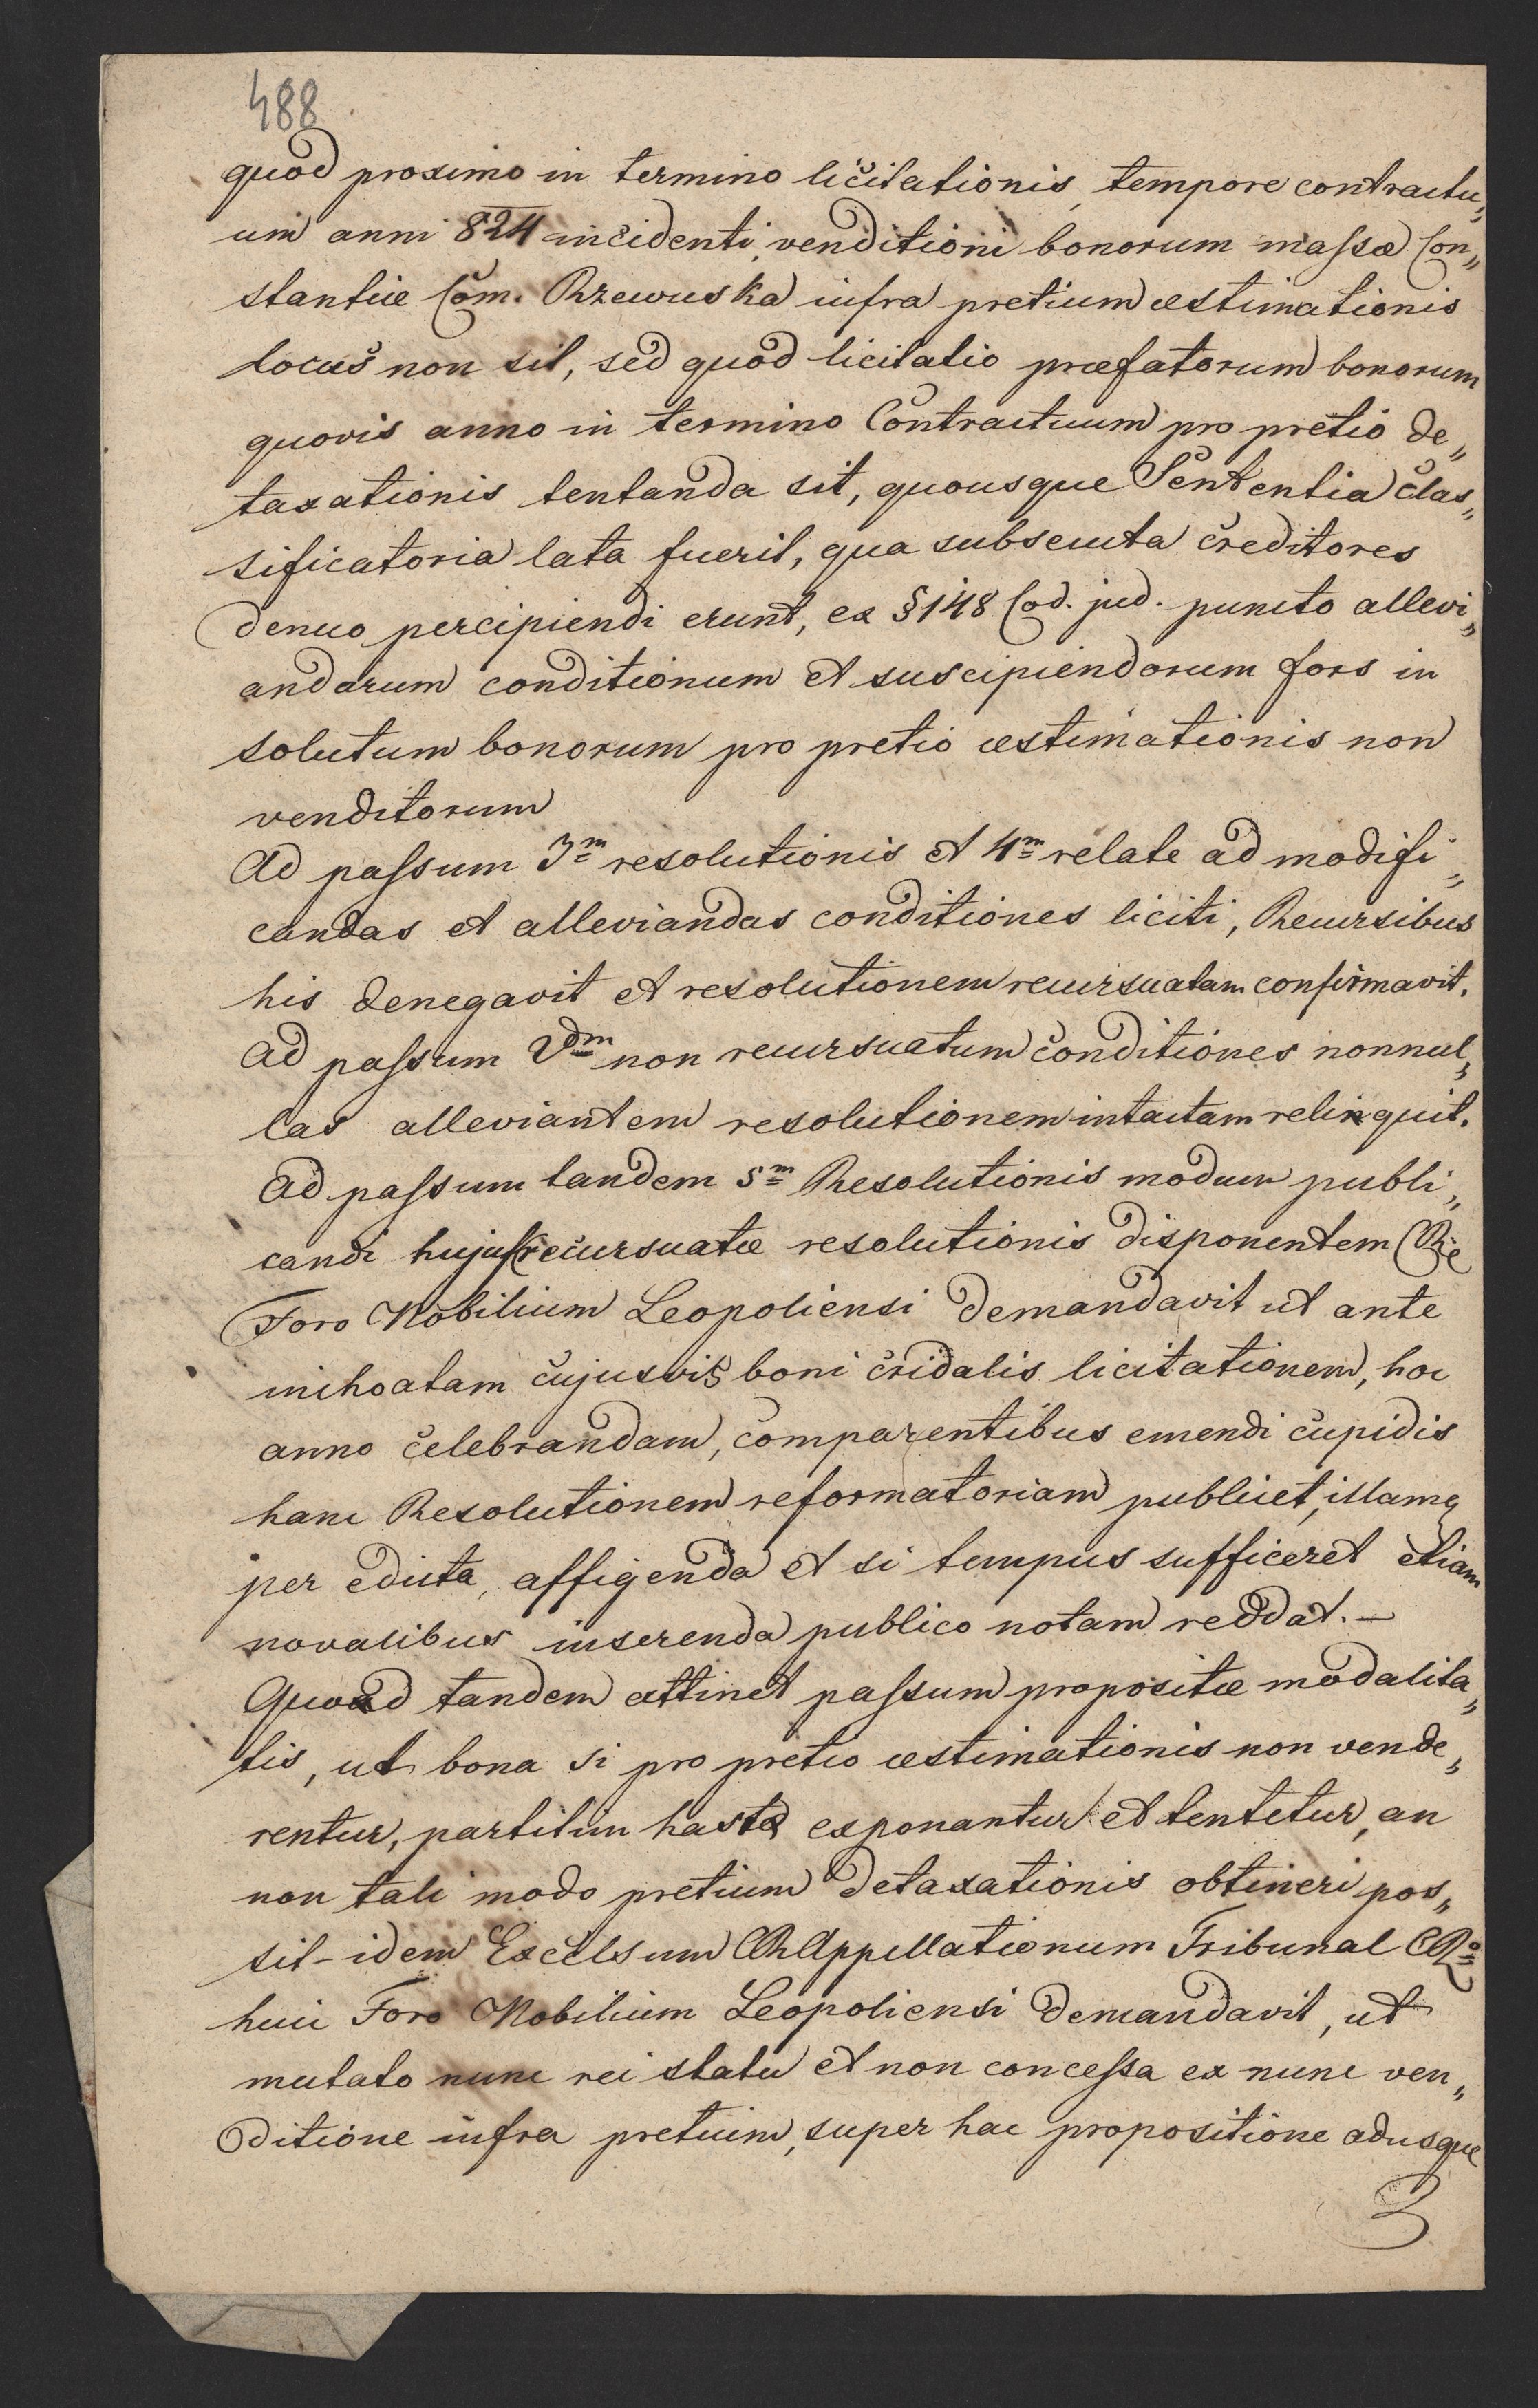 488
quod proximo in termino licitationis, tempore contractu„
um anni 824 incidenti, venditioni bonorum massæ Con„
stantiæ Com. Rzewuska infra pretium æstimationis
locus non sit, sed quod licitatio præfatorum bonorum
quovis anno in termino Contractuum pro pretio de„
taxationis tentanda sit, quousque Sententia clas„
sificatoria lata fuerit, qua subsecuta creditores
denuo percipiendi erunt, ex § 148 Cod. jud. puncto allevi„
andarum conditionum et suscipiendorum fors in
solutum bonorum pro pretio æstimationis non
venditorum
Ad passum 3m resolutionis et 4m relate ad modifi„
candas et alleviandas conditiones liciti, Recursibus
his denegavit et resolutionem recursuatam confirmavit.
Ad passum 2dm non recursuatum conditiones nonnul„
las alleviantem resolutionem intactam relinquit.
Ad passum tandem 5m Resolutionis modum publi„
candi hujus recursuatæ resolutionis disponentem
Foro Nobilium Leopoliensi demandavit ut ante
inchoatam cujusvis boni cridalis licitationem, hoc
anno celebrandam, comparentibus emendi cupidis
hanc Resolutionem reformatoriam publicet, illamq
per edicta, affigenda et si tempus sufficeret etiam
novalibus inserenda publico notam reddat. —
Quoad tandem attinet passum propositæ modalita„
tis, ut bona si pro pretio æstimationis non vende„
rentur, partitim hastæ exponantur et tentetur, an
non tali modo pretium detaxationis obtineri pos„
sit - idem Excelsum CR Appellationum Tribunal CRo
huic Foro Nobilium Leopoliensi demandavit, ut
mutato nunc rei statu et non concessa ex nunc ven„
ditione infra pretium, super hac propositione adusque